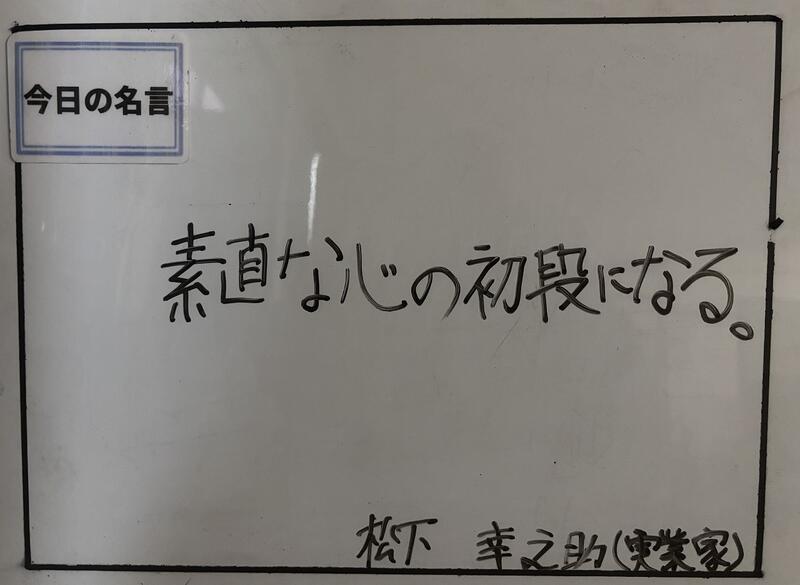 今日の名言
素直な心の初段になる。
松下 幸之助(実業家)